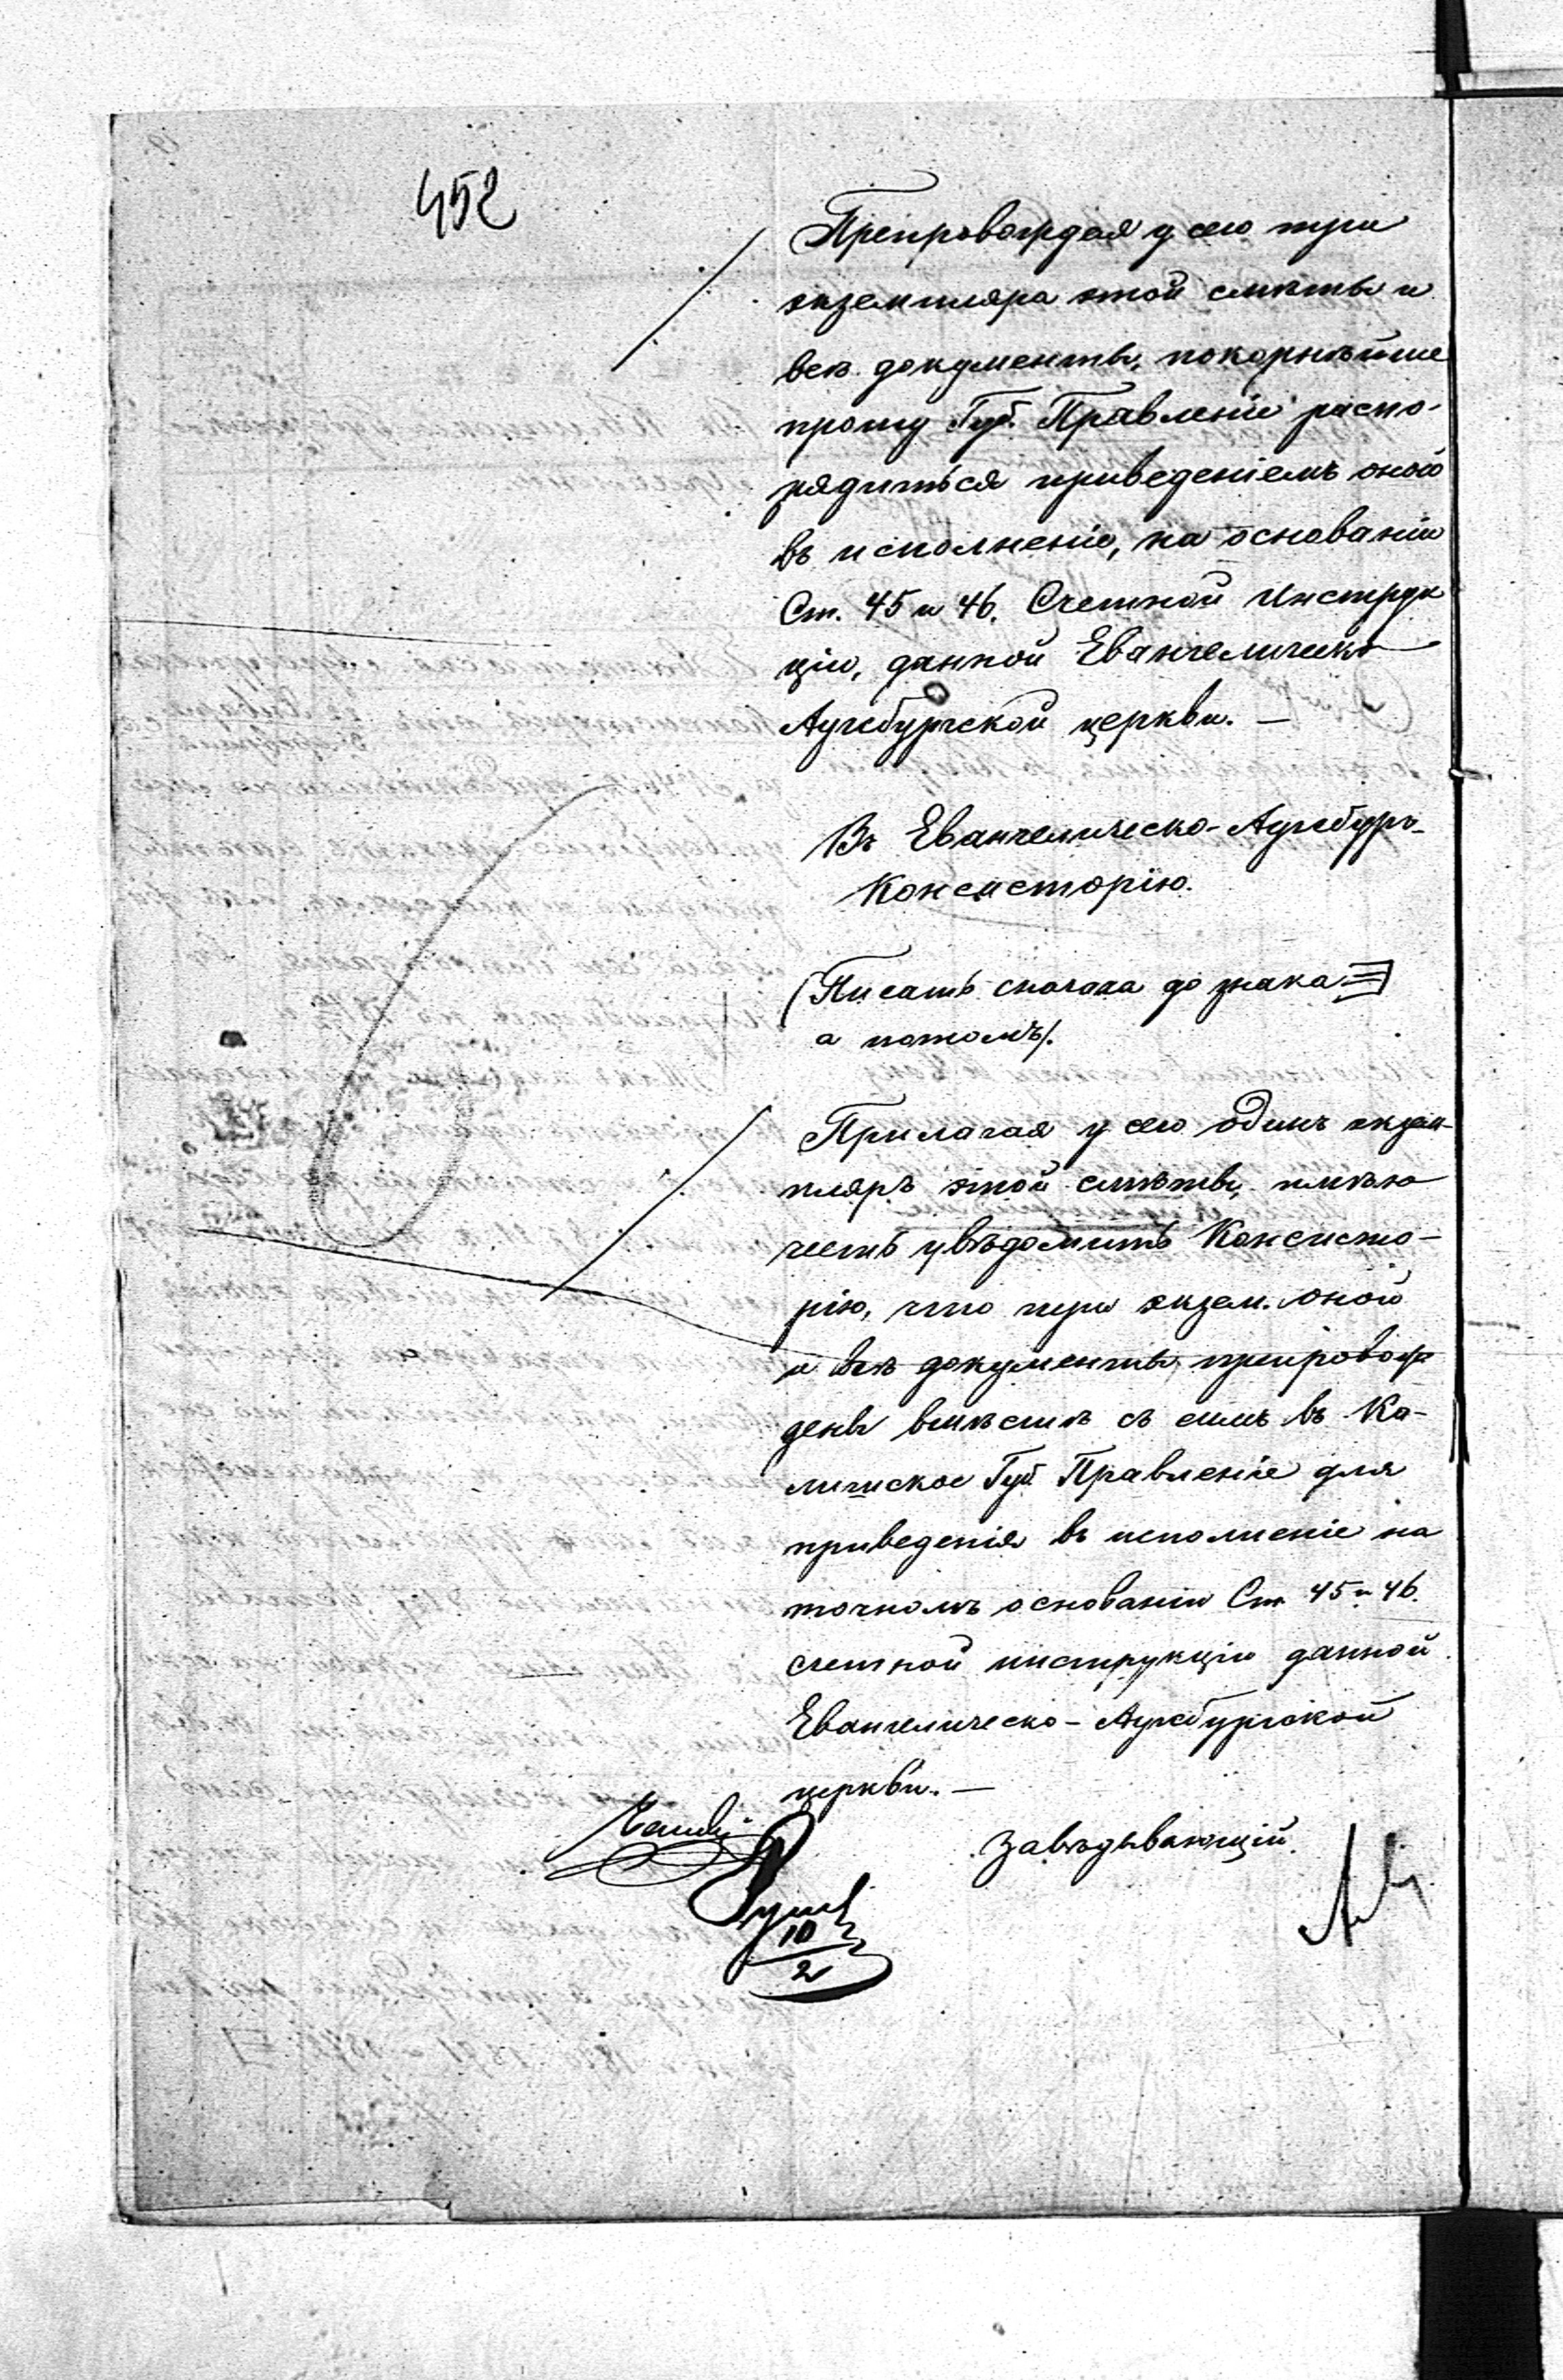 452
Препровождая у сего три
экземпляра этой смѣты и
всѣ документы, покорнѣйше
прошу Губ. Правленіе распо-
рядиться приведеніемъ оной
въ исполненіе, на основаніи
Ст. 45 и 46. Счетной Инструк
ціи, данной Евангелическо
Аугсбургской церкви. —
Въ Евангелическо-Аугсбург-
Консисторію.
(Писать сначала до знака
а потомъ).
Прилагая у сего одинъ экзем-
пляръ этой смѣты, имѣю
честь увѣдомить Консисто-
рію, что три экзем. оной
и всѣ документы, препровож
дены вмѣстѣ съ симъ въ Ка-
лишское Губ. Правленіе для
приведенія въ исполненіе на
точномъ основаніи Ст. 45 и 46.
счетной инструкціи данной
Евангелическо-Аугсбургской
церкви. —
Завѣдывающій.
10
2